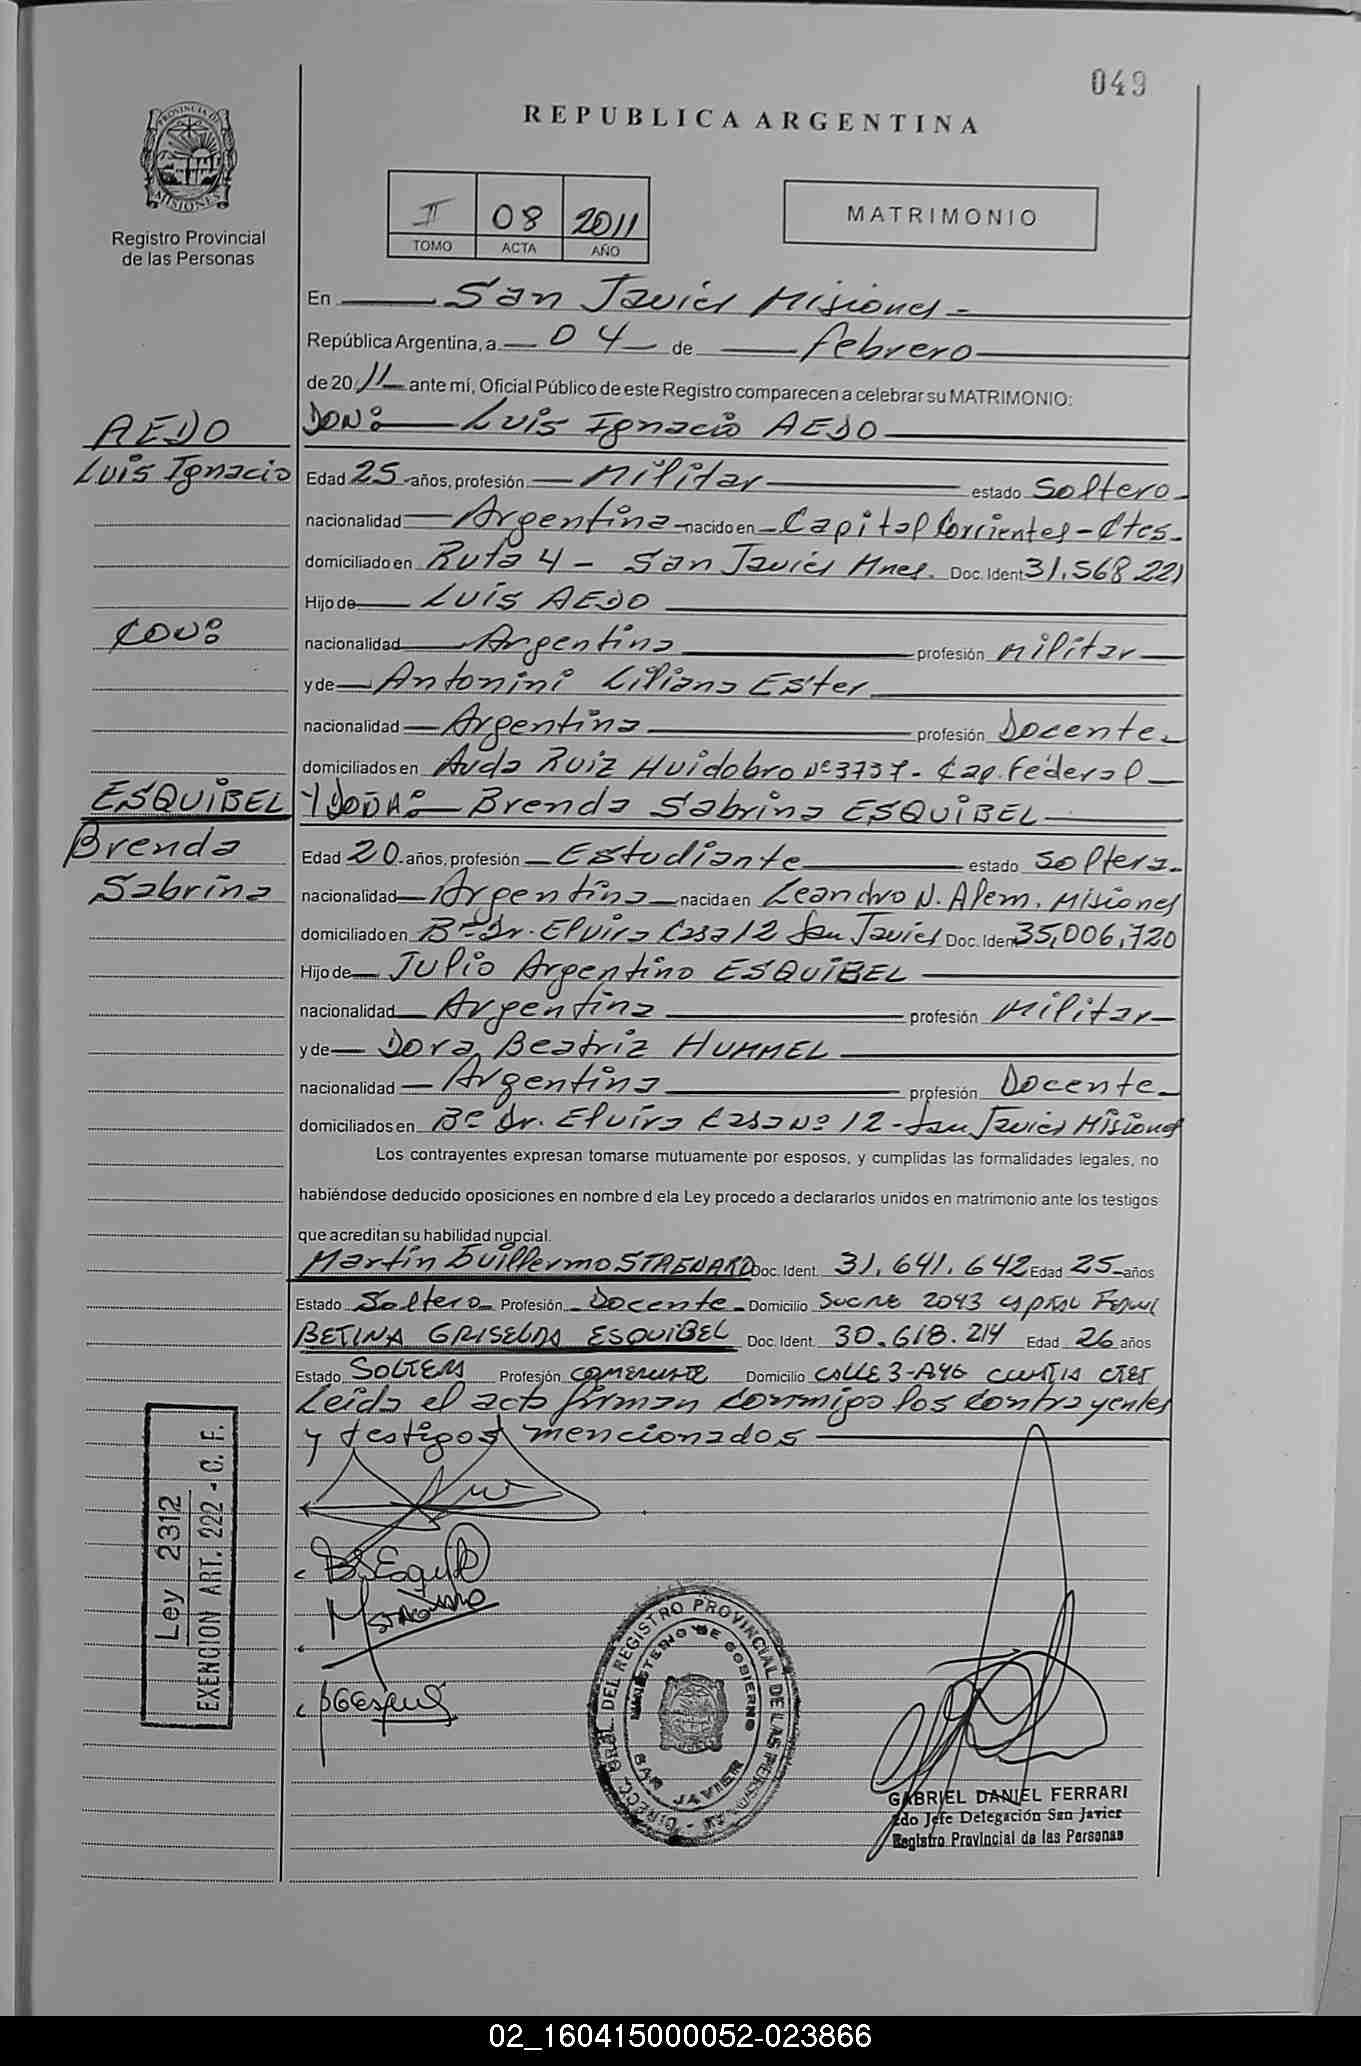 049
PROVINCIA DE
MISIONES
Registro Provincial
de las Personas
REPUBLICA ARGENTINA
II 08 2011
TOMO ACTA AÑO
MATRIMONIO
En San Javier Misiones -
República Argentina, a 04 de febrero
de 20 11 ante mí, Oficial Público de este Registro comparecen a celebrar su MATRIMONIO:
AEDO
Luis Ignacio
CON:
ESQUIBEL
Brenda
Sabrina
DON: Luis Ignacio AEDO
Edad 25 años, profesión Militar estado Soltero
nacionalidad Argentina nacido en Capital Corrientes - Ctes -
domiciliado en Ruta 4 - San Javier Mnes. Doc. Ident 31.568.221
Hijo de Luis AEDO
nacionalidad Argentina profesión Militar
y de Antonini Liliana Ester
nacionalidad Argentina profesión Docente
domiciliados en Avda Ruiz Huidobro Nº 3737 - Cap. Federal
Y DOÑA: Brenda Sabrina ESQUIBEL
Edad 20 años, profesión Estudiante estado soltera
nacionalidad Argentina nacida en Leandro N. Alem. Misiones
domiciliado en Bº Dr. Elvira Casa 12 San Javier Doc. Ident 35,006,720
Hijo de Julio Argentino ESQUIBEL
nacionalidad Argentina profesión Militar
y de Dora Beatriz HUMMEL
nacionalidad Argentina profesión Docente
domiciliados en Bº Dr. Elvira Casa Nº 12 - San Javier Misiones
Los contrayentes expresan tomarse mutuamente por esposos, y cumplidas las formalidades legales, no
habiéndose deducido oposiciones en nombre d ela Ley procedo a declararlos unidos en matrimonio ante los testigos
que acreditan su habilidad nupcial.
Martín Guillermo Doc. Ident. 31.641.642 Edad 25 años
Estado Soltero Profesión Docente Domicilio Sucre 2043 Capital
BETINA GRISELDA ESQUIBEL Doc. Ident. 30.618.214 Edad 26 años
Estado SOLTERA Profesión Domicilio CALLE 3
Leída el acta firman conmigo los contrayentes
y testigos mencionados
Ley 2312
EXENCION ART. 222 - C. F.
DIRECC. GRAL. DEL REGISTRO PROVINCIAL DE LAS PERSONAS
MINISTERIO DE GOBIERNO
SAN JAVIER
GABRIEL DANIEL FERRARI
2do Jefe Delegación San Javier
Registro Provincial de las Personas
02_160415000052-023866